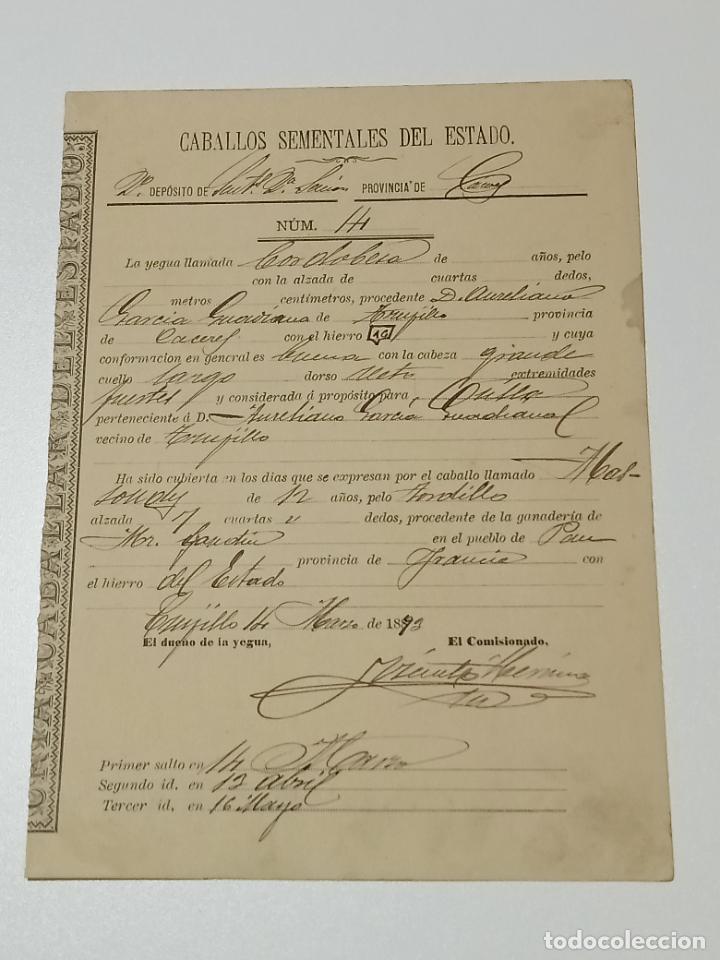 CABALLOS SEMENTALES DEL ESTADO.
DEPÓSITO DE PROVINCIA DE
NÚM. 14
La yegua llamada Cordobesa de años, pelo
con la alzada de cuartas dedos,
metros centímetros, procedente D. Aureliano
Garcia Guadiana de Trujillo provincia
de Caceres con el hierro y cuya
conformacion en general es buena con la cabeza grande
cuello largo dorso recto extremidades
fuertes y considerada á propósito para Silla
perteneciente á D. Aureliano Garcia Guadiana
vecino de Trujillo
Ha sido cubierta en los dias que se expresan por el caballo llamado Mas-
soudy de 12 años, pelo tordillo
alzada 7 cuartas 11 dedos, procedente de la ganadería de
Mr. en el pueblo de Pau
provincia de Francia con
el hierro del Estado
Trujillo 14 Marzo de 1893
El dueño de la yegua, El Comisionado,
Vicente
Primer salto en 14 Marzo
Segundo id. en 12 abril
Tercer id. en 16 Mayo
CRIA CABALLAR DEL ESTADO.
todocoleccion
todocoleccion.net